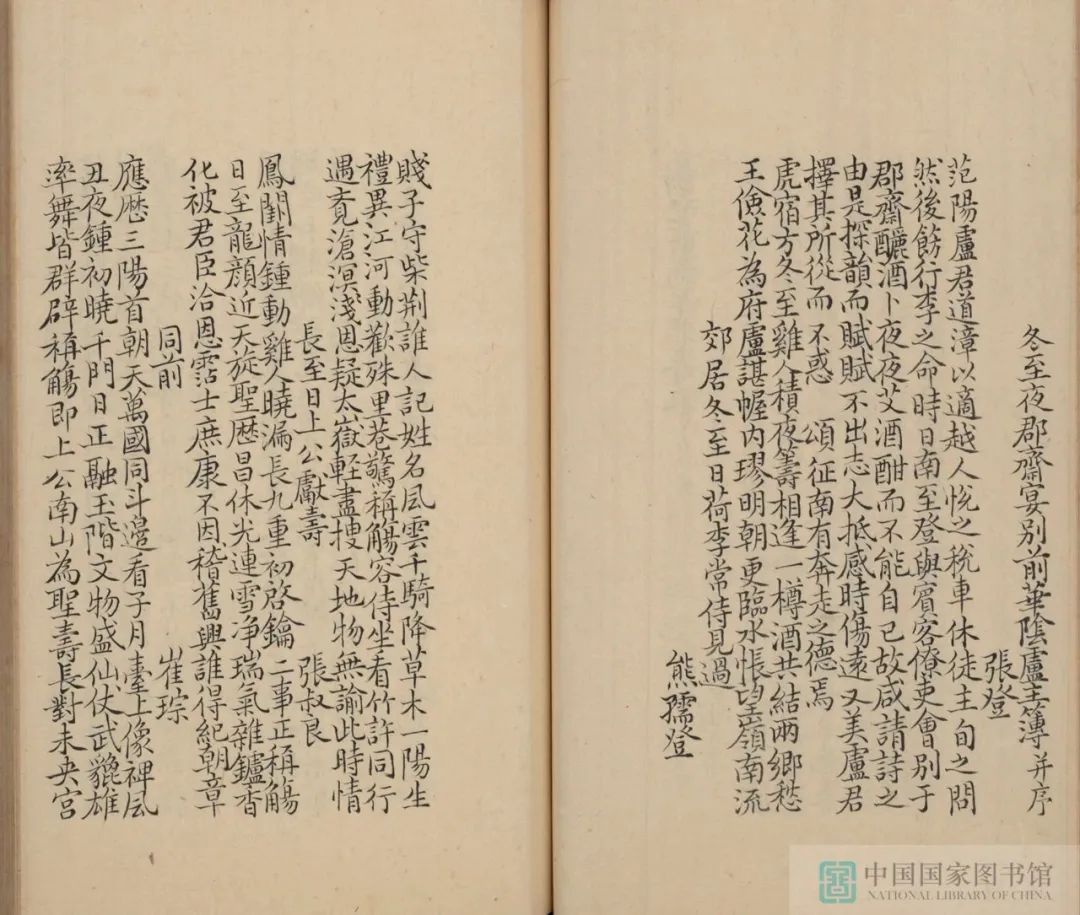 冬至夜郡齋宴别前華陰盧主簿 并序
張登
范陽盧君道漳以適越人悅之稅車休徒主旬之問
然後飭行李之命時日南至登與賓客僚吏會别于
郡齋釃酒卜夜夜艾酒酣而不能自已故咸請詩之
由是探韻而賦賦不出志大抵感時傷遠又美盧君
擇其所從而不惑 頌征南有奔走之德焉
虎宿方冬至雞人積夜籌相逢一樽酒共結兩鄉愁
王儉花為府盧諶幄内璆明朝更臨水悵望嶺南流
郊居冬至日荷李常侍見過
熊孺登
賤子守柴荆誰人記姓名風雲千騎降草木一陽生
禮異江河動歡殊里巷驚稱觴容侍坐看竹許同行
遇覔滄溟淺恩疑太嶽軽盡搜天地物無諭此時情
長至日上公獻壽
張叔良
鳳闕情鍾動雞人曉漏長九重初啓鑰二事正稱觴
日至龍顔近天旋聖歴昌休光連雪净瑞氣雜鑪香
化被君臣洽恩霑士庶康不因稽舊興誰得紀朝章
同前
崔琮
應歴三陽首朝天萬國同斗邊看子月臺上像禆風
丑夜鍾初曉千門日正融玉階文物盛仙仗武貔雄
率舞皆群辟稱觴即上公南山為聖壽長對未央宫
中国国家图书馆
NATIONAL LIBRARY OF CHINA